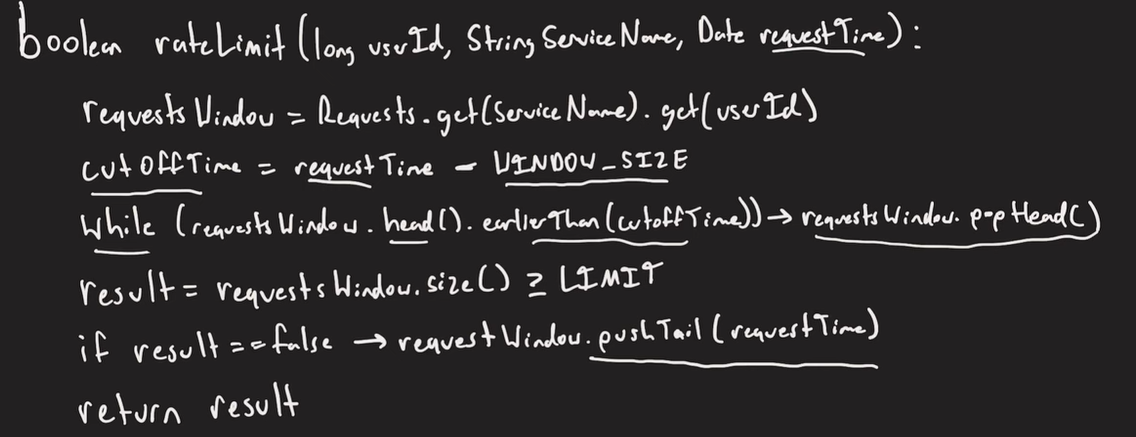 boolean rateLimit(long userId, String ServiceName, Date requestTime):
requestsWindow = Requests.get(ServiceName).get(userId)
cutOffTime = requestTime - WINDOW_SIZE
While (requestsWindow.head().earlierThan(cutoffTime)) → requestsWindow.popHead()
result = requestsWindow.size() ≥ LIMIT
if result == false → requestWindow.pushTail(requestTime)
return result